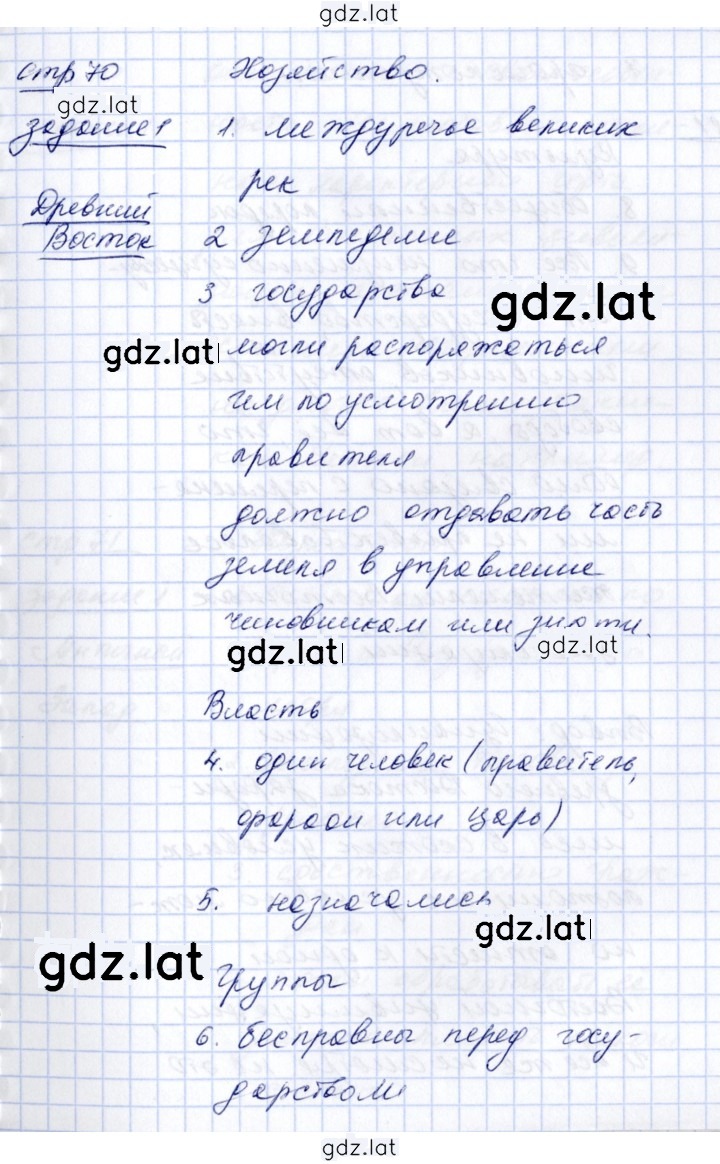 gdz.lat
стр 70 Хозяйство.
gdz.lat
задание 1 1. междуречье великих
рек
Древний
Восток 2 земледелие
3 государства
gdz.lat
gdz.lat могли распоряжаться
им по усмотрению
правителя
должно отдавать часть
земель в управление
чиновникам или знати.
gdz.lat gdz.lat
Власть
4. один человек (правитель,
фараон или царь)
5. назначались
gdz.lat
gdz.lat
Группы
6. бесправны перед госу-
дарством
gdz.lat